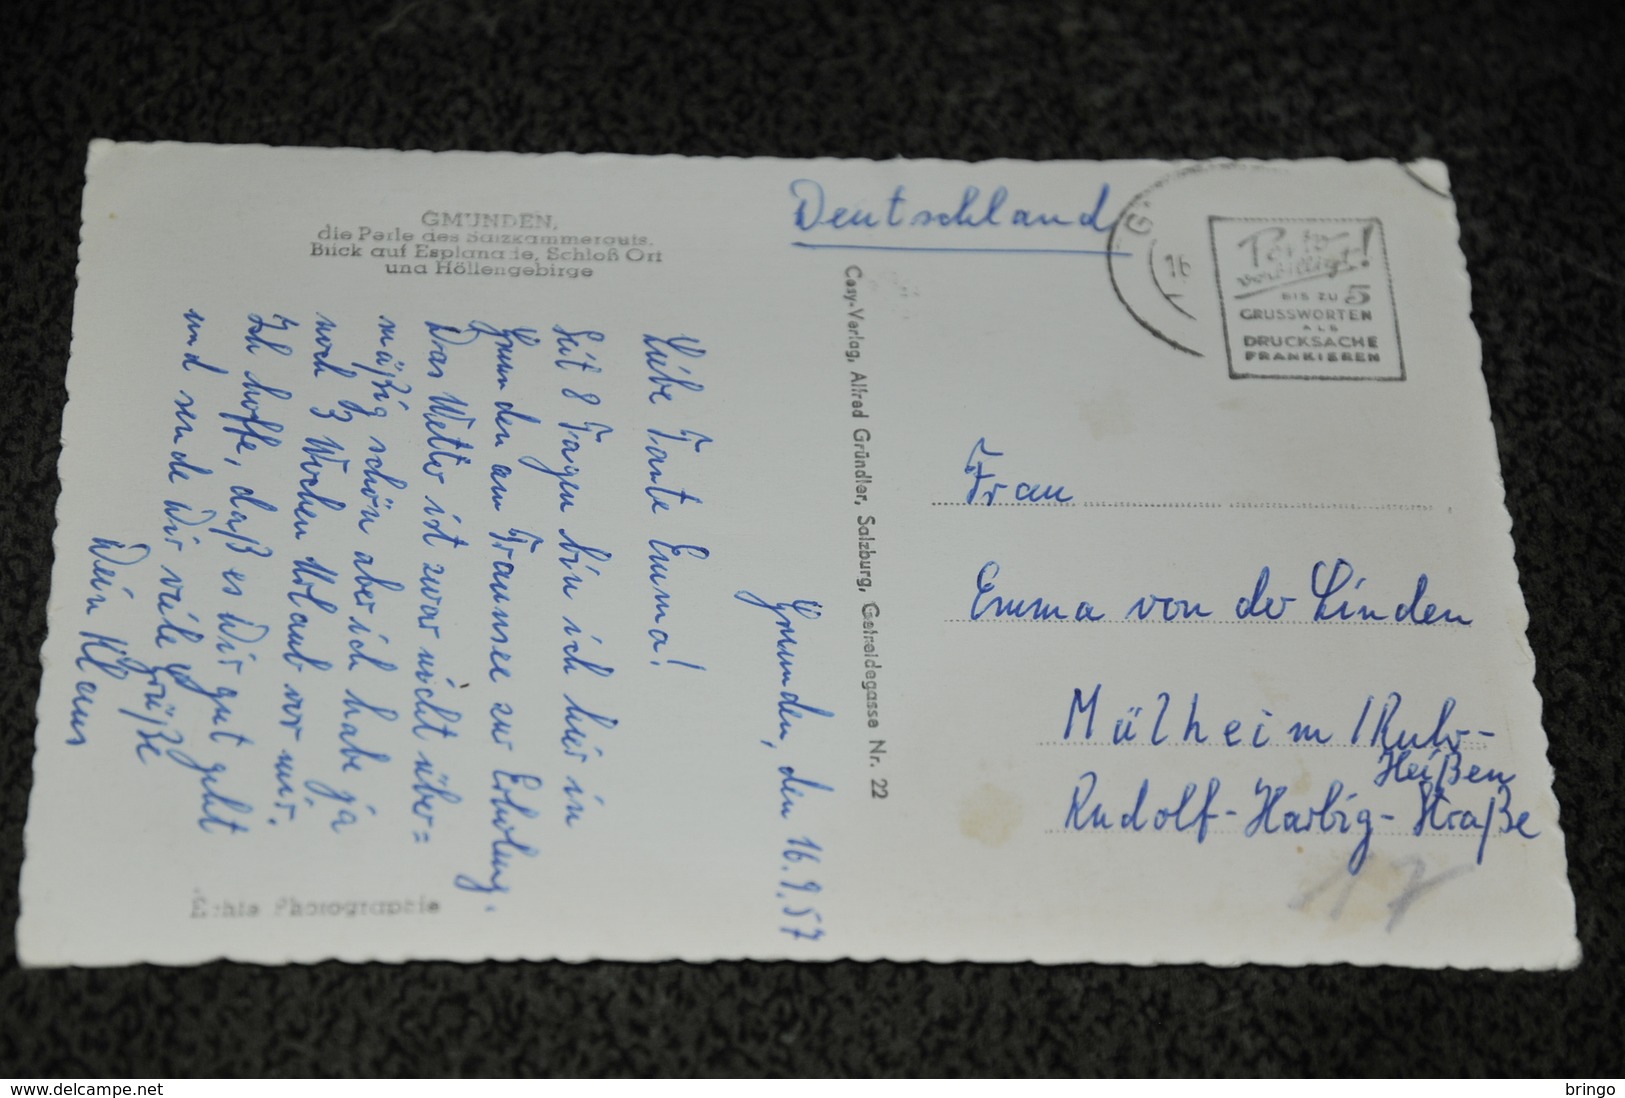 GMUNDEN,
die Perle des Salzkammerguts.
Blick auf Esplanade, Schloß Ort
und Höllengebirge
Gmunden, den 16.9.57
Liebe Tante Emma!
Seit 8 Tagen bin ich hier in
Gmunden am Traunsee zur Erholung.
Das Wetter ist zwar nicht über=
mäßig schön aber ich habe ja
noch 3 Wochen Urlaub vor mir.
Ich hoffe, daß es Dir gut geht
und sende Dir viele Grüße
Dein Klaus
Echte Photographie
Cosy-Verlag, Alfred Gründler, Salzburg, Getreidegasse Nr. 22
Deutschland
G
16
Porto
verbilligt!
BIS ZU 5
GRUSSWORTEN
ALS
DRUCKSACHE
FRANKIEREN
Frau
Emma von der Linden
Mülheim/Ruhr-
Heißen
Rudolf-Harbig-Straße
17
delcampe.net
bringo